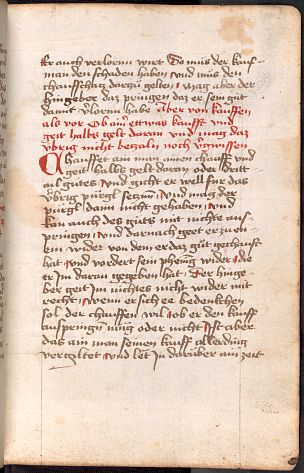 Er auch verlorn wirt So müs der kauf-
man den schaden haben vnd müs den
chauffschatz dartzü gelten mag aber der
hingeber daz pringen daz er sein güt
damit v'lorn habe Aber von kauffen
als vor Ob ainer etwas kaufft vnd
geit halbs gelt daran vnd mag daz
vbrig nicht betzaln noch v'gwissen
Chauffet ain man ainen chauff vnd
geit halbs gelt daran oder drit-
tail gutes vnd gicht er well für das
vbrig pürgl setzen vnd mag der
pürgl dann nicht gehaben vnd
kan auch des güts mit nichte auf-
pringen vnd darnach geet er zu de-
em wider von dem er daz güt gechaufft
hat vnd vordert sein phening wider die
er im daran gegeben hat Der hinge-
ber geit im nichtes nicht wider mit
recht wenn er sich ee bedenkchen
sol der chauffen wil ob er den kauff
aufpringen müg oder nicht Ist aber
das ain man seinen kauff allerding
vergiltet vnd let in darüber ain zeit